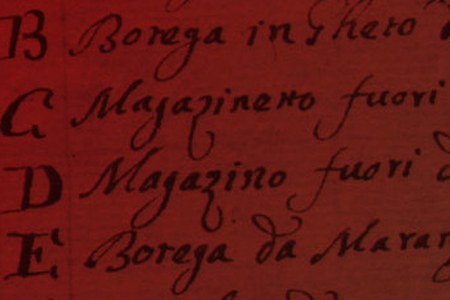 B Borega in Gheto
C Magazinetto fuori
D Magazino fuori
E Borega da Maran